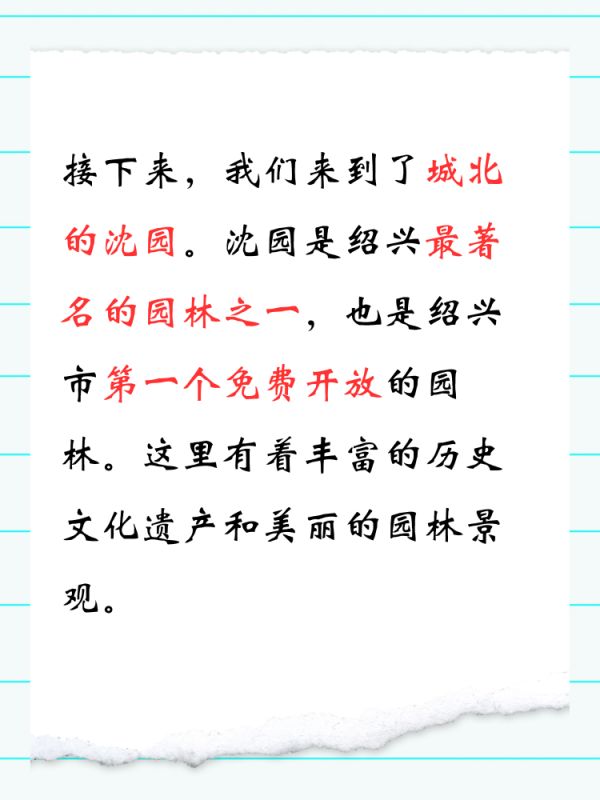 接下来，我们来到了城北
的沈园。沈园是绍兴最著
名的园林之一，也是绍兴
市第一个免费开放的园
林。这里有着丰富的历史
文化遗产和美丽的园林景
观。